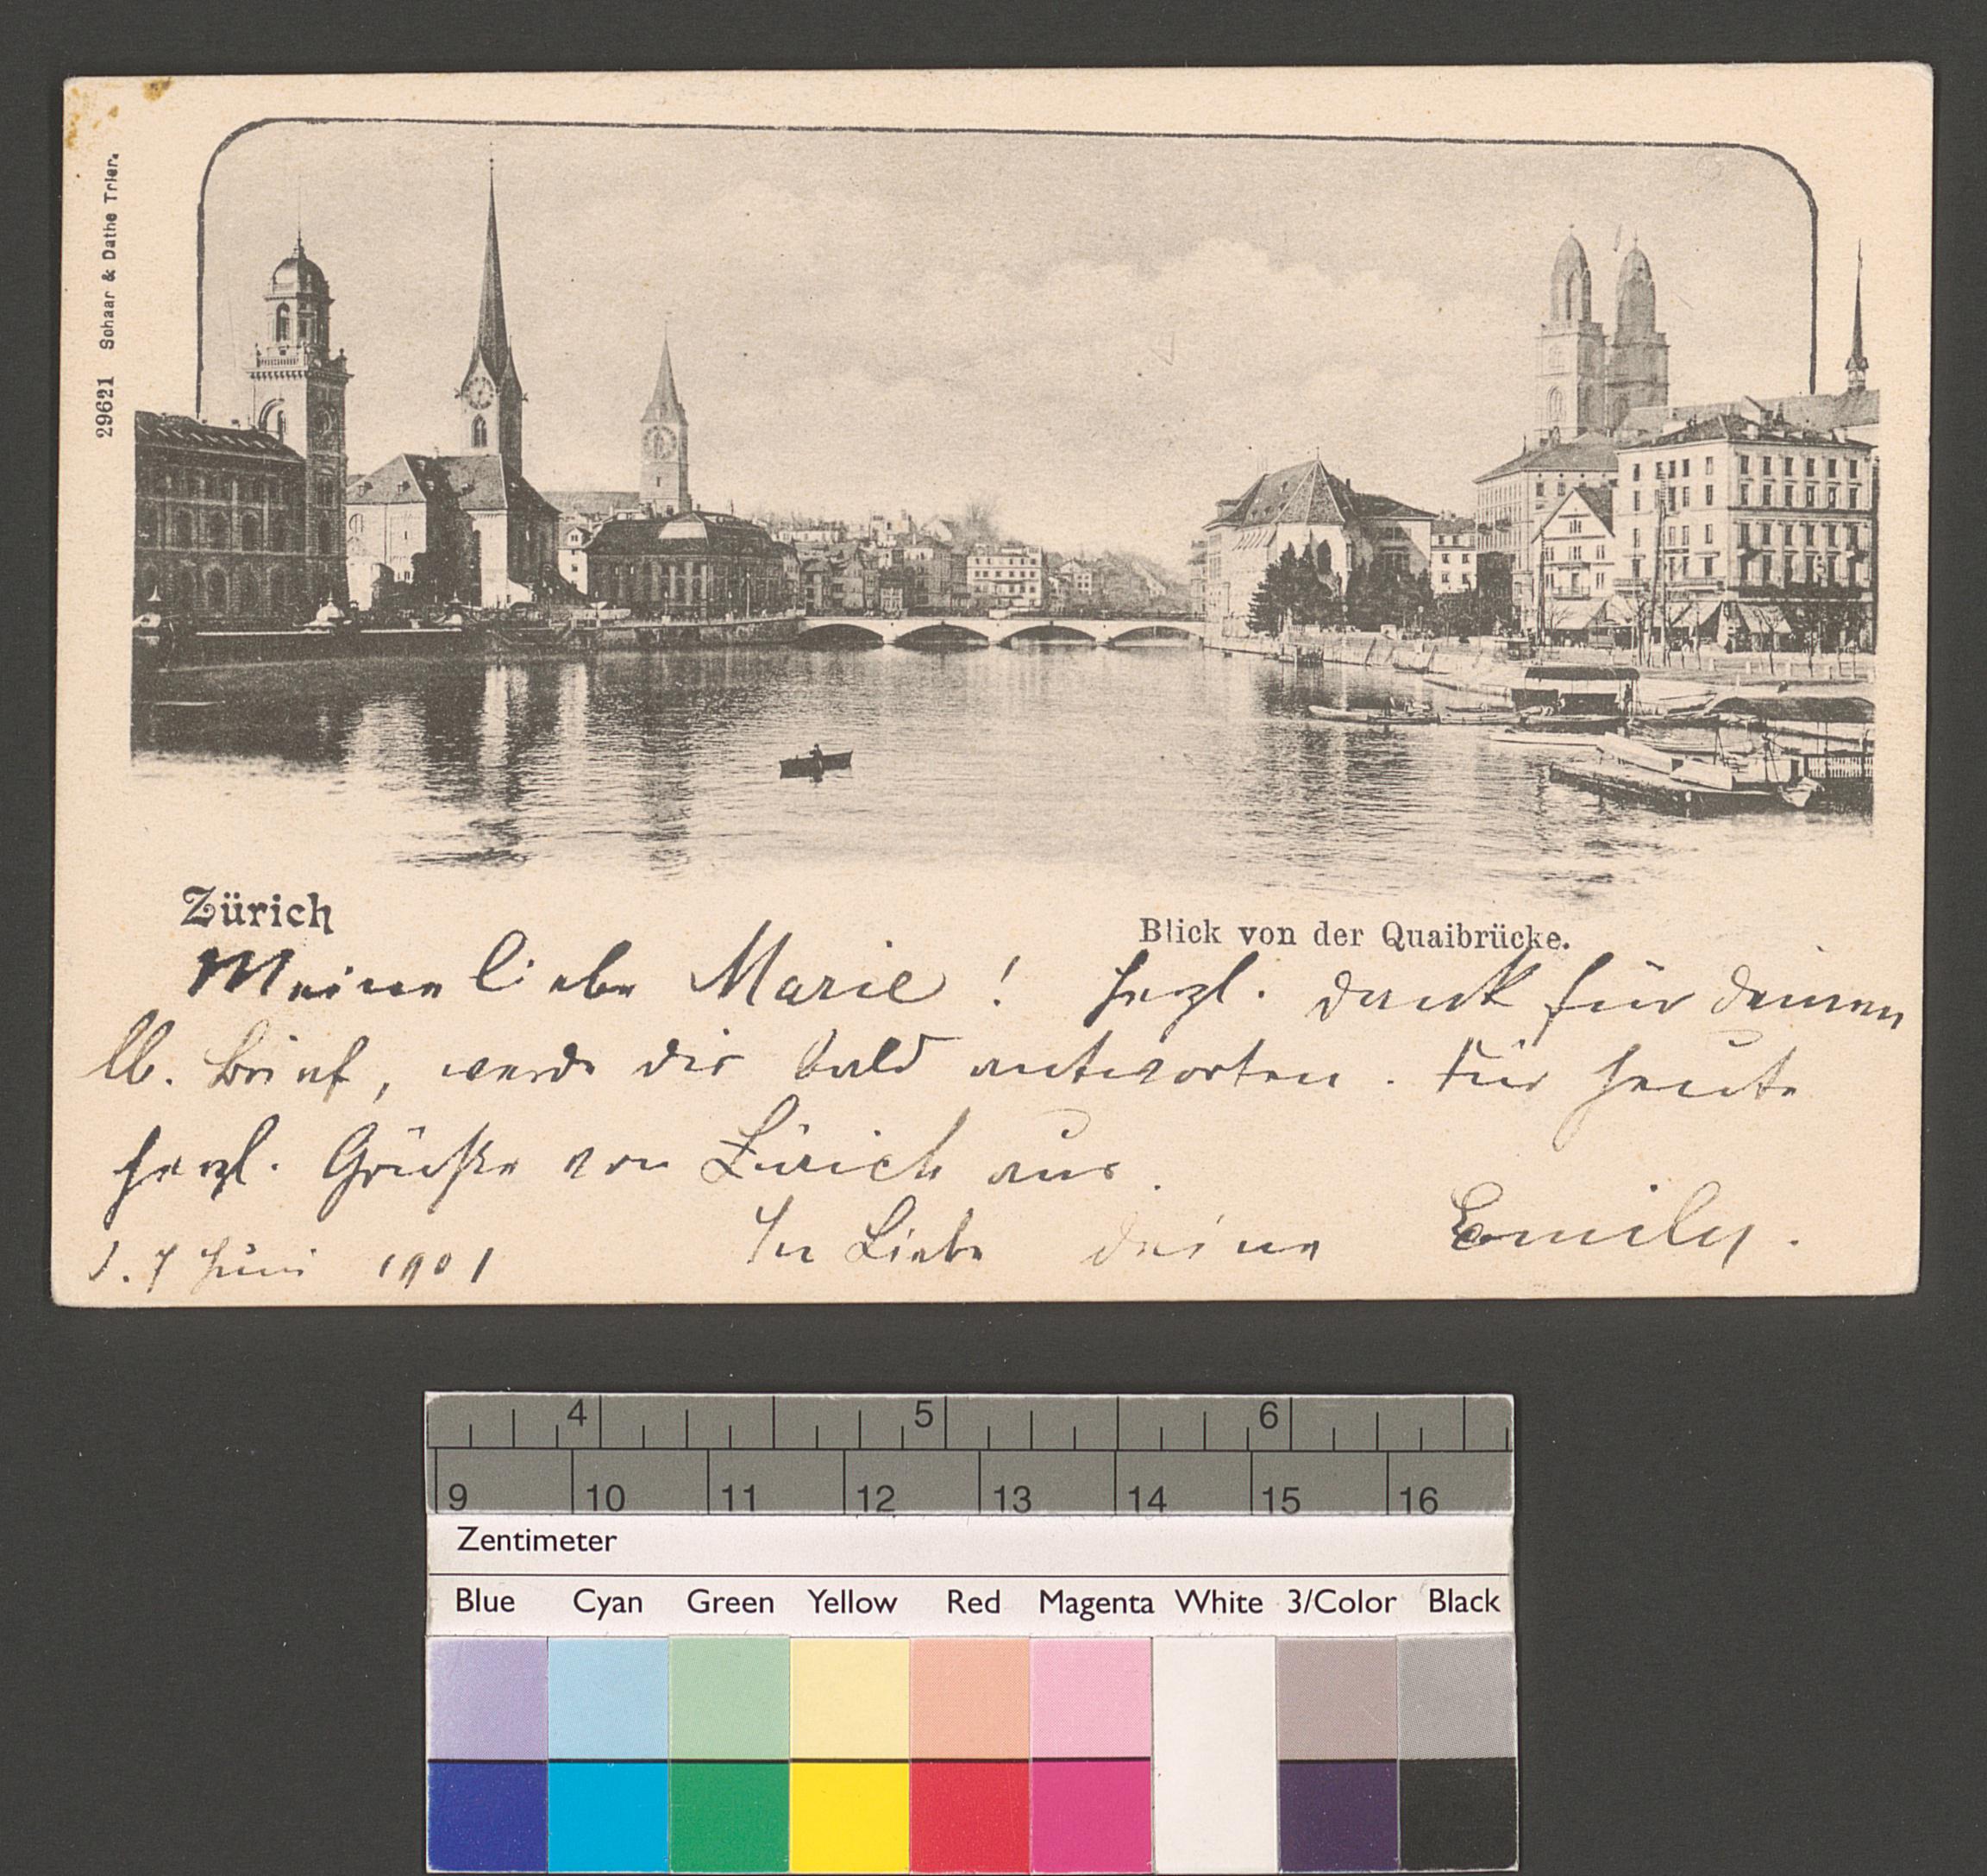 29621 Schaar & Dathe Trier.
Zürich
Blick von der Quaibrücke.
Meine liebe Marie! Herzl. Dank für deinen
lb. Brief, werde dir bald antworten. Für heute
herzl. Grüße von Zürich aus.
In Liebe deine Emily.
7 Juni 1901
4 5 6
9 10 11 12 13 14 15 16
Zentimeter
Blue Cyan Green Yellow Red Magenta White 3/Color Black